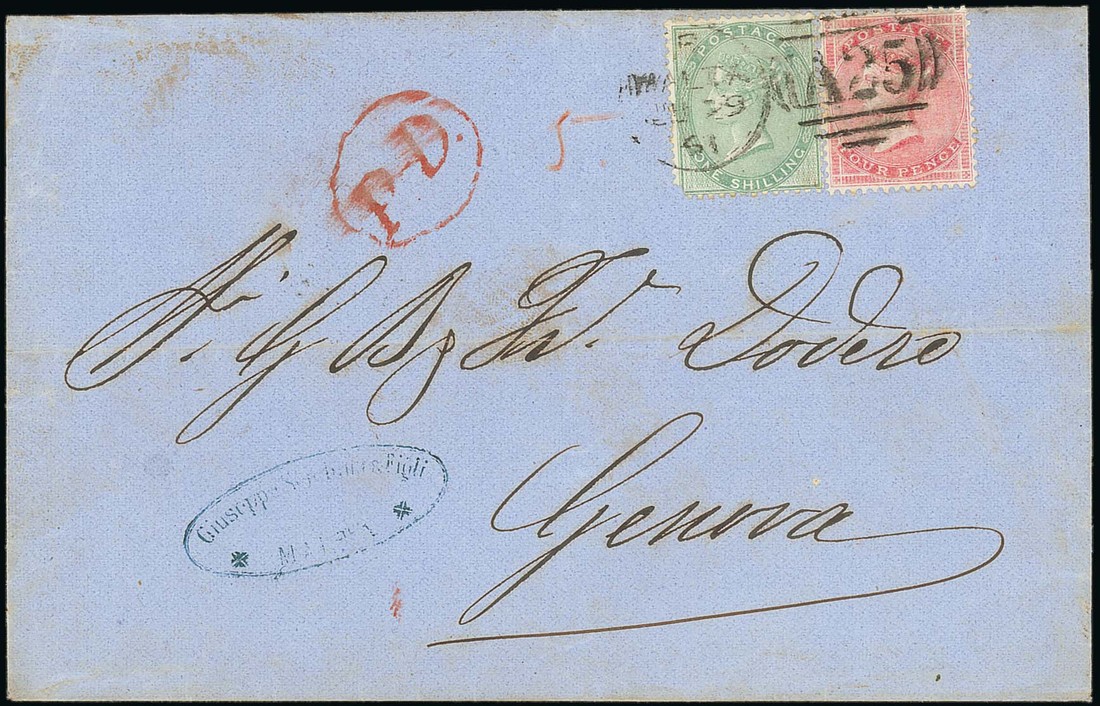 POSTAGE
ONE SHILLING
POSTAGE
FOUR PENCE
A25
29
61
P.D.
5
G B Dodero
Genova
Giuseppe & Figli
MALTA